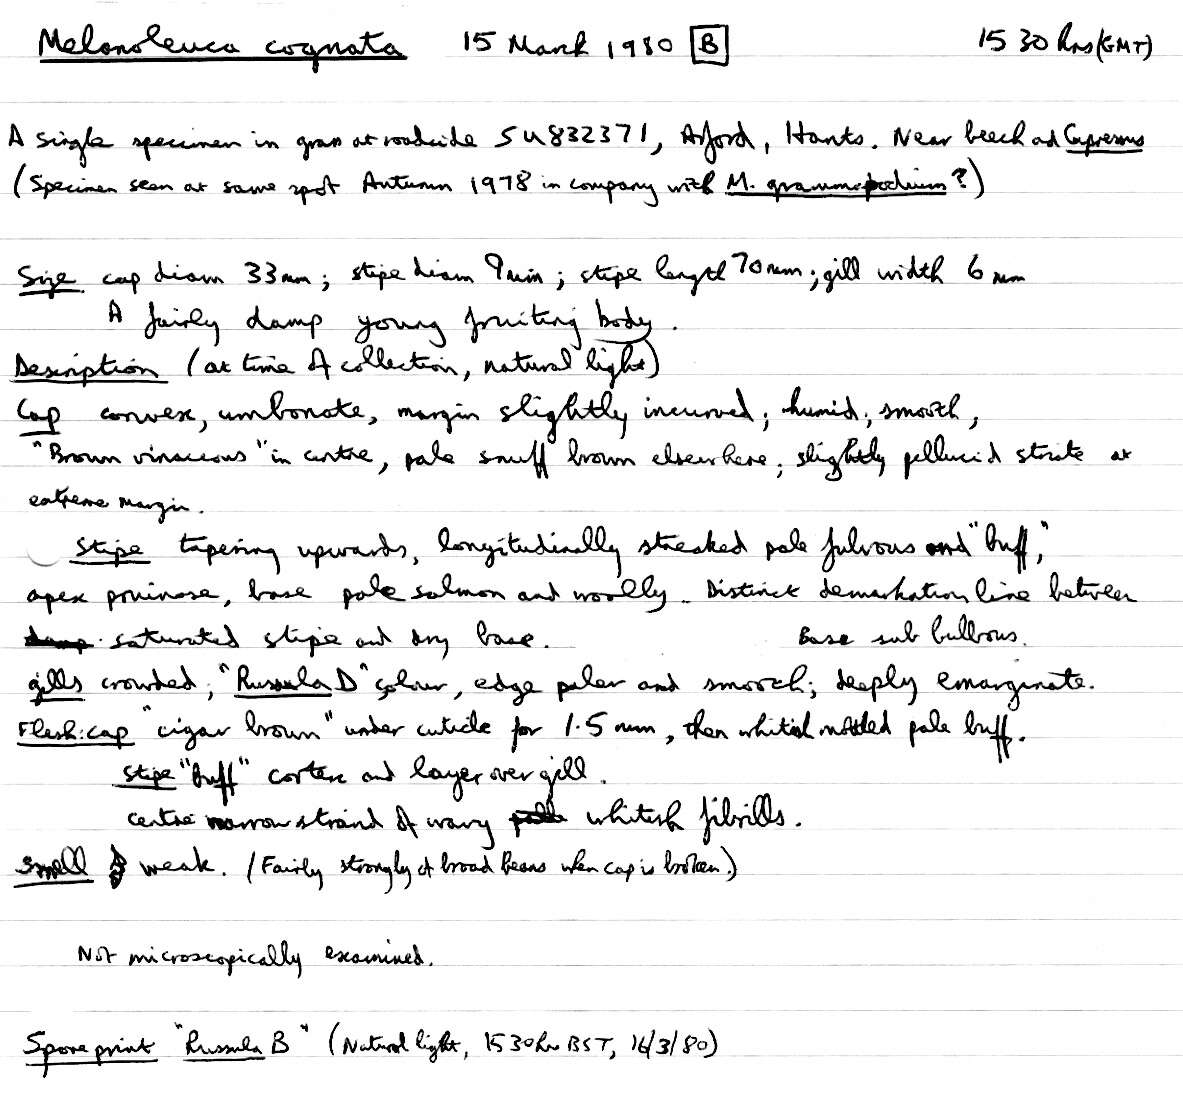 Melanoleuca cognata 15 March 1980 B 15 30 hrs (GMT)
A single specimen in grass at roadside SU832371, Arford, Hants. Near beech and Cupressus
(Specimen seen at same spot Autumn 1978 in company with M. grammopodium?)
Size cap diam 33mm; stipe diam 9mm; stipe length 70mm; gill width 6mm
A fairly damp young fruiting body.
Description (at time of collection, natural light)
Cap convex, umbonate, margin slightly incurved; humid, smooth,
"Brown vinaceous" in centre, pale snuff brown elsewhere; slightly pellucid striate at
extreme margin.
Stipe tapering upwards, longitudinally streaked pale fulvous and "buff,"
apex pruinose, base pale salmon and woolly. Distinct demarkation line between
saturated stipe and dry base. Base sub bulbous.
gills crowded; "Russula D" colour, edge paler and smooth; deeply emarginate.
Flesh: cap "cigar brown" under cuticle for 1.5 mm, then whitish mottled pale buff.
stipe "buff" cortex and layer over gill.
centre narrow strand of wavy whitish fibrills.
Smell weak. (Fairly strongly of broad beans when cap is broken.)
Not microscopically examined.
Spore print "Russula B" (Natural light, 1530hr BST, 16/3/80)